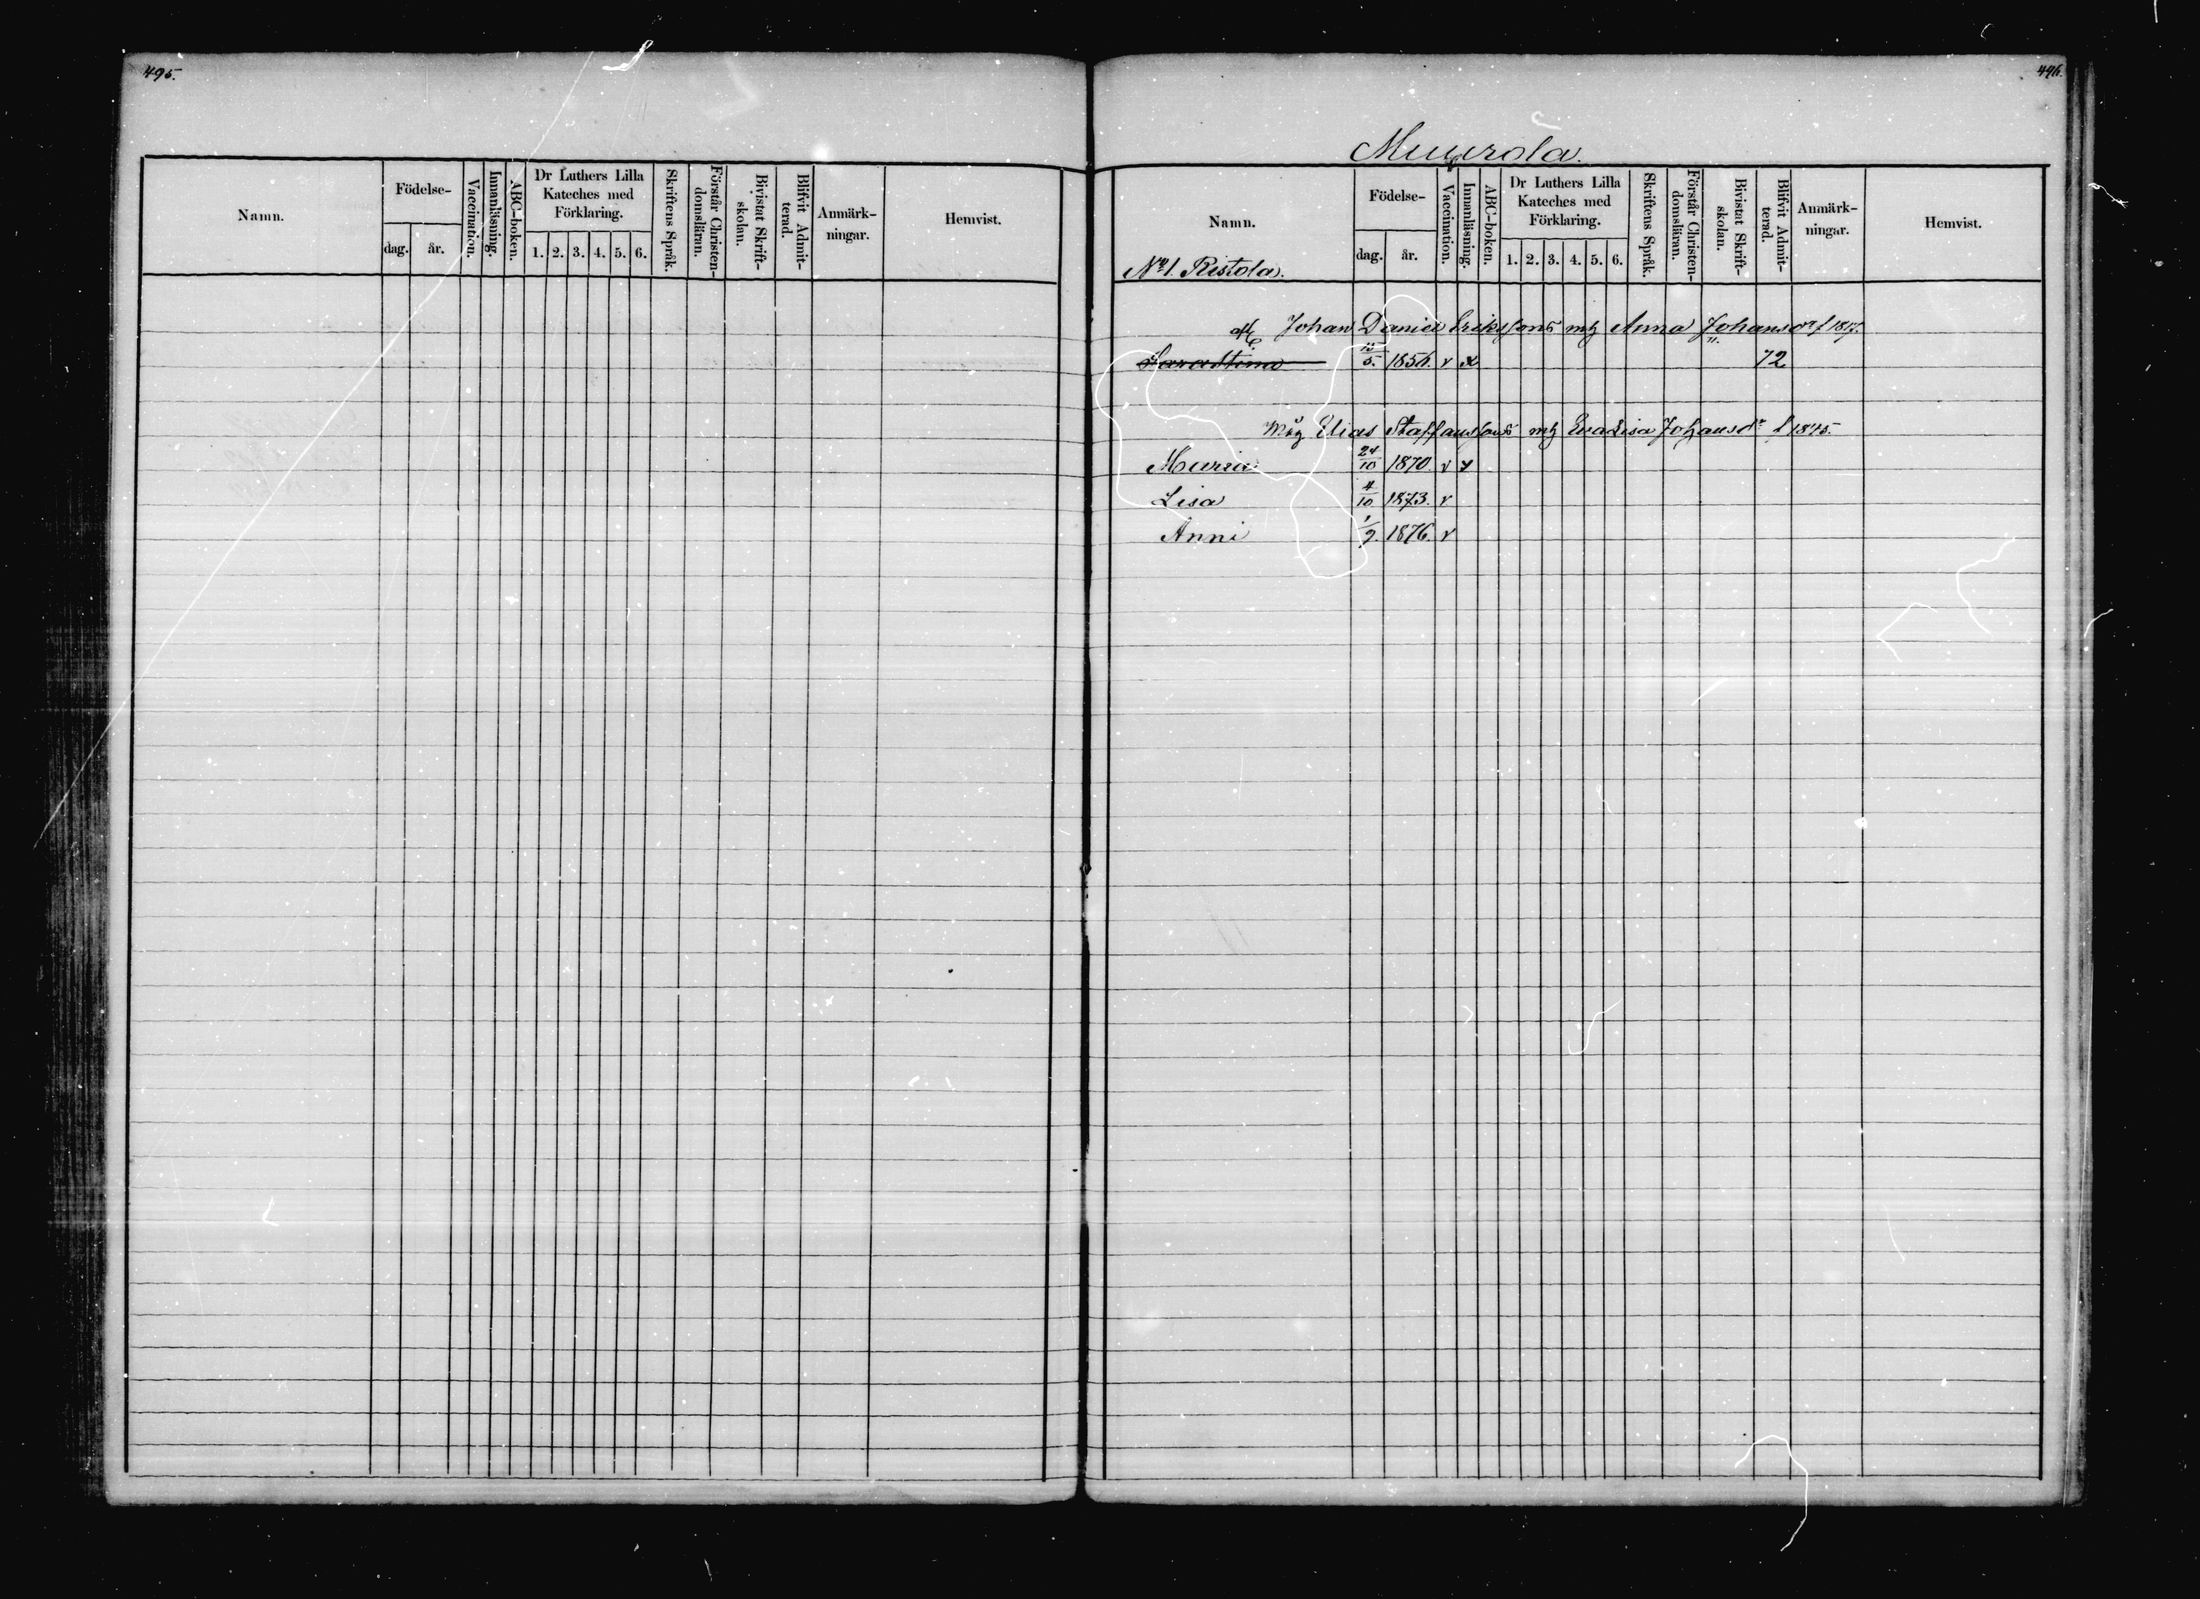 495.
Namn.
Födelse-
dag. år.
Vaccination.
Innanläsning.
ABC-boken.
Dr Luthers Lilla
Kateches med
Förklaring.
1. 2. 3. 4. 5. 6.
Skriftens Språk.
Förstår Christen-
domsläran.
Bivistat Skrift-
skolan.
Blifvit Admit-
terad.
Anmärk-
ningar.
Hemvist.
496.
Muurola.
Namn.
No 1. Ristola.
Födelse-
dag. år.
Vaccination.
Innanläsning.
ABC-boken.
Dr Luthers Lilla
Kateches med
Förklaring.
1. 2. 3. 4. 5. 6.
Skriftens Språk.
Förstår Christen-
domsläran.
Bivistat Skrift-
skolan.
Blifvit Admit-
terad.
Anmärk-
ningar.
Hemvist.
Johan Daniel Erikssons mh Anna Johansdr f 1817.
Sara Stina 5. 1856. v x 72
Måg Elias Staffanssons mh Eva Lisa Johansdr f 1845.
Maria 24/10 1870. v x
Lisa 4/10 1873. v
Anni 1/9. 1876. v